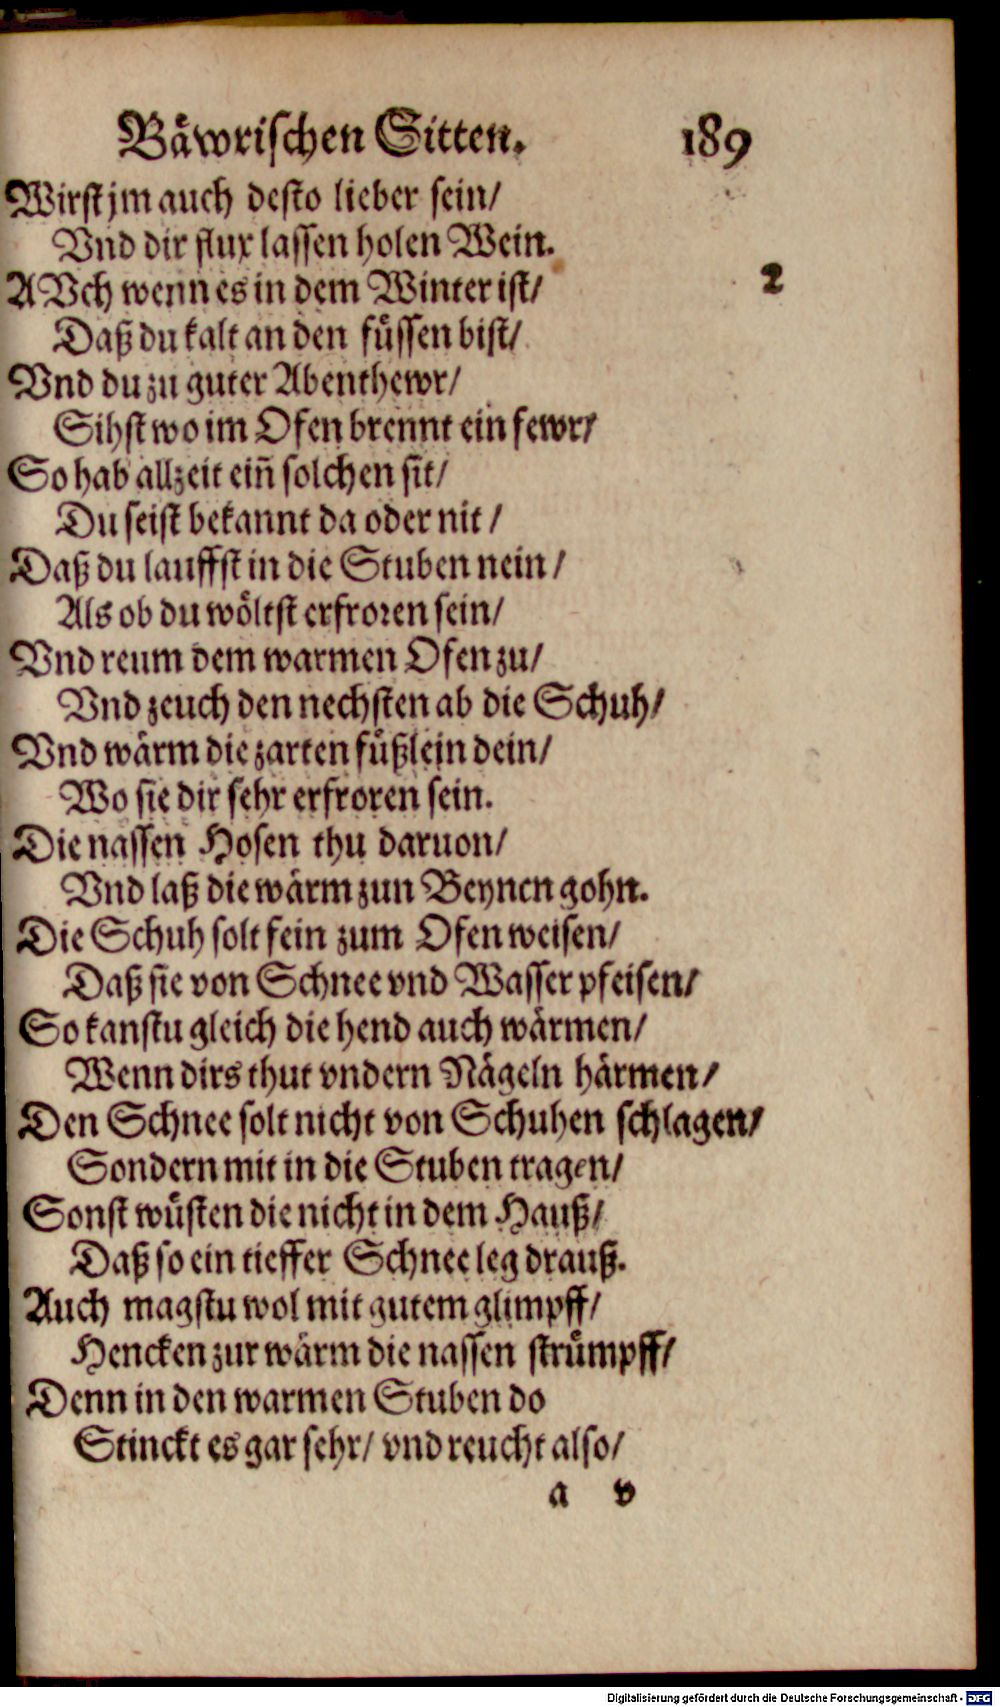 Bäwrischen Sitten. 189
Wirst jm auch desto lieber sein/
Vnd dir flux lassen holen Wein.
AVch wenn es in dem Winter ist/ 2
Daß du kalt an den füssen bist/
Vnd du zu guter Abenthewr/
Sihst wo im Ofen brennt ein fewr/
So hab allzeit eiñ solchen sit/
Du seist bekannt da oder nit/
Daß du lauffst in die Stuben nein/
Als ob du wöltst erfroren sein/
Vnd reum dem warmen Ofen zu/
Vnd zeuch den nechsten ab die Schuh/
Vnd wärm die zarten füßlein dein/
Wo sie dir sehr erfroren sein.
Die nassen Hosen thu daruon/
Vnd laß die wärm zun Beynen gohn.
Die Schuh solt fein zum Ofen weisen/
Daß sie von Schnee vnd Wasser pfeisen/
So kanstu gleich die hend auch wärmen/
Wenn dirs thut vndern Nägeln härmen/
Den Schnee solt nicht von Schuhen schlagen/
Sondern mit in die Stuben tragen/
Sonst wüsten die nicht in dem Hauß/
Daß so ein tieffer Schnee leg drauß.
Auch magstu wol mit gutem glimpff/
Hencken zur wärm die nassen strümpff/
Denn in den warmen Stuben do
Stinckt es gar sehr/ vnd reucht also/
a v
Digitalisierung gefördert durch die Deutsche Forschungsgemeinschaft - DFG